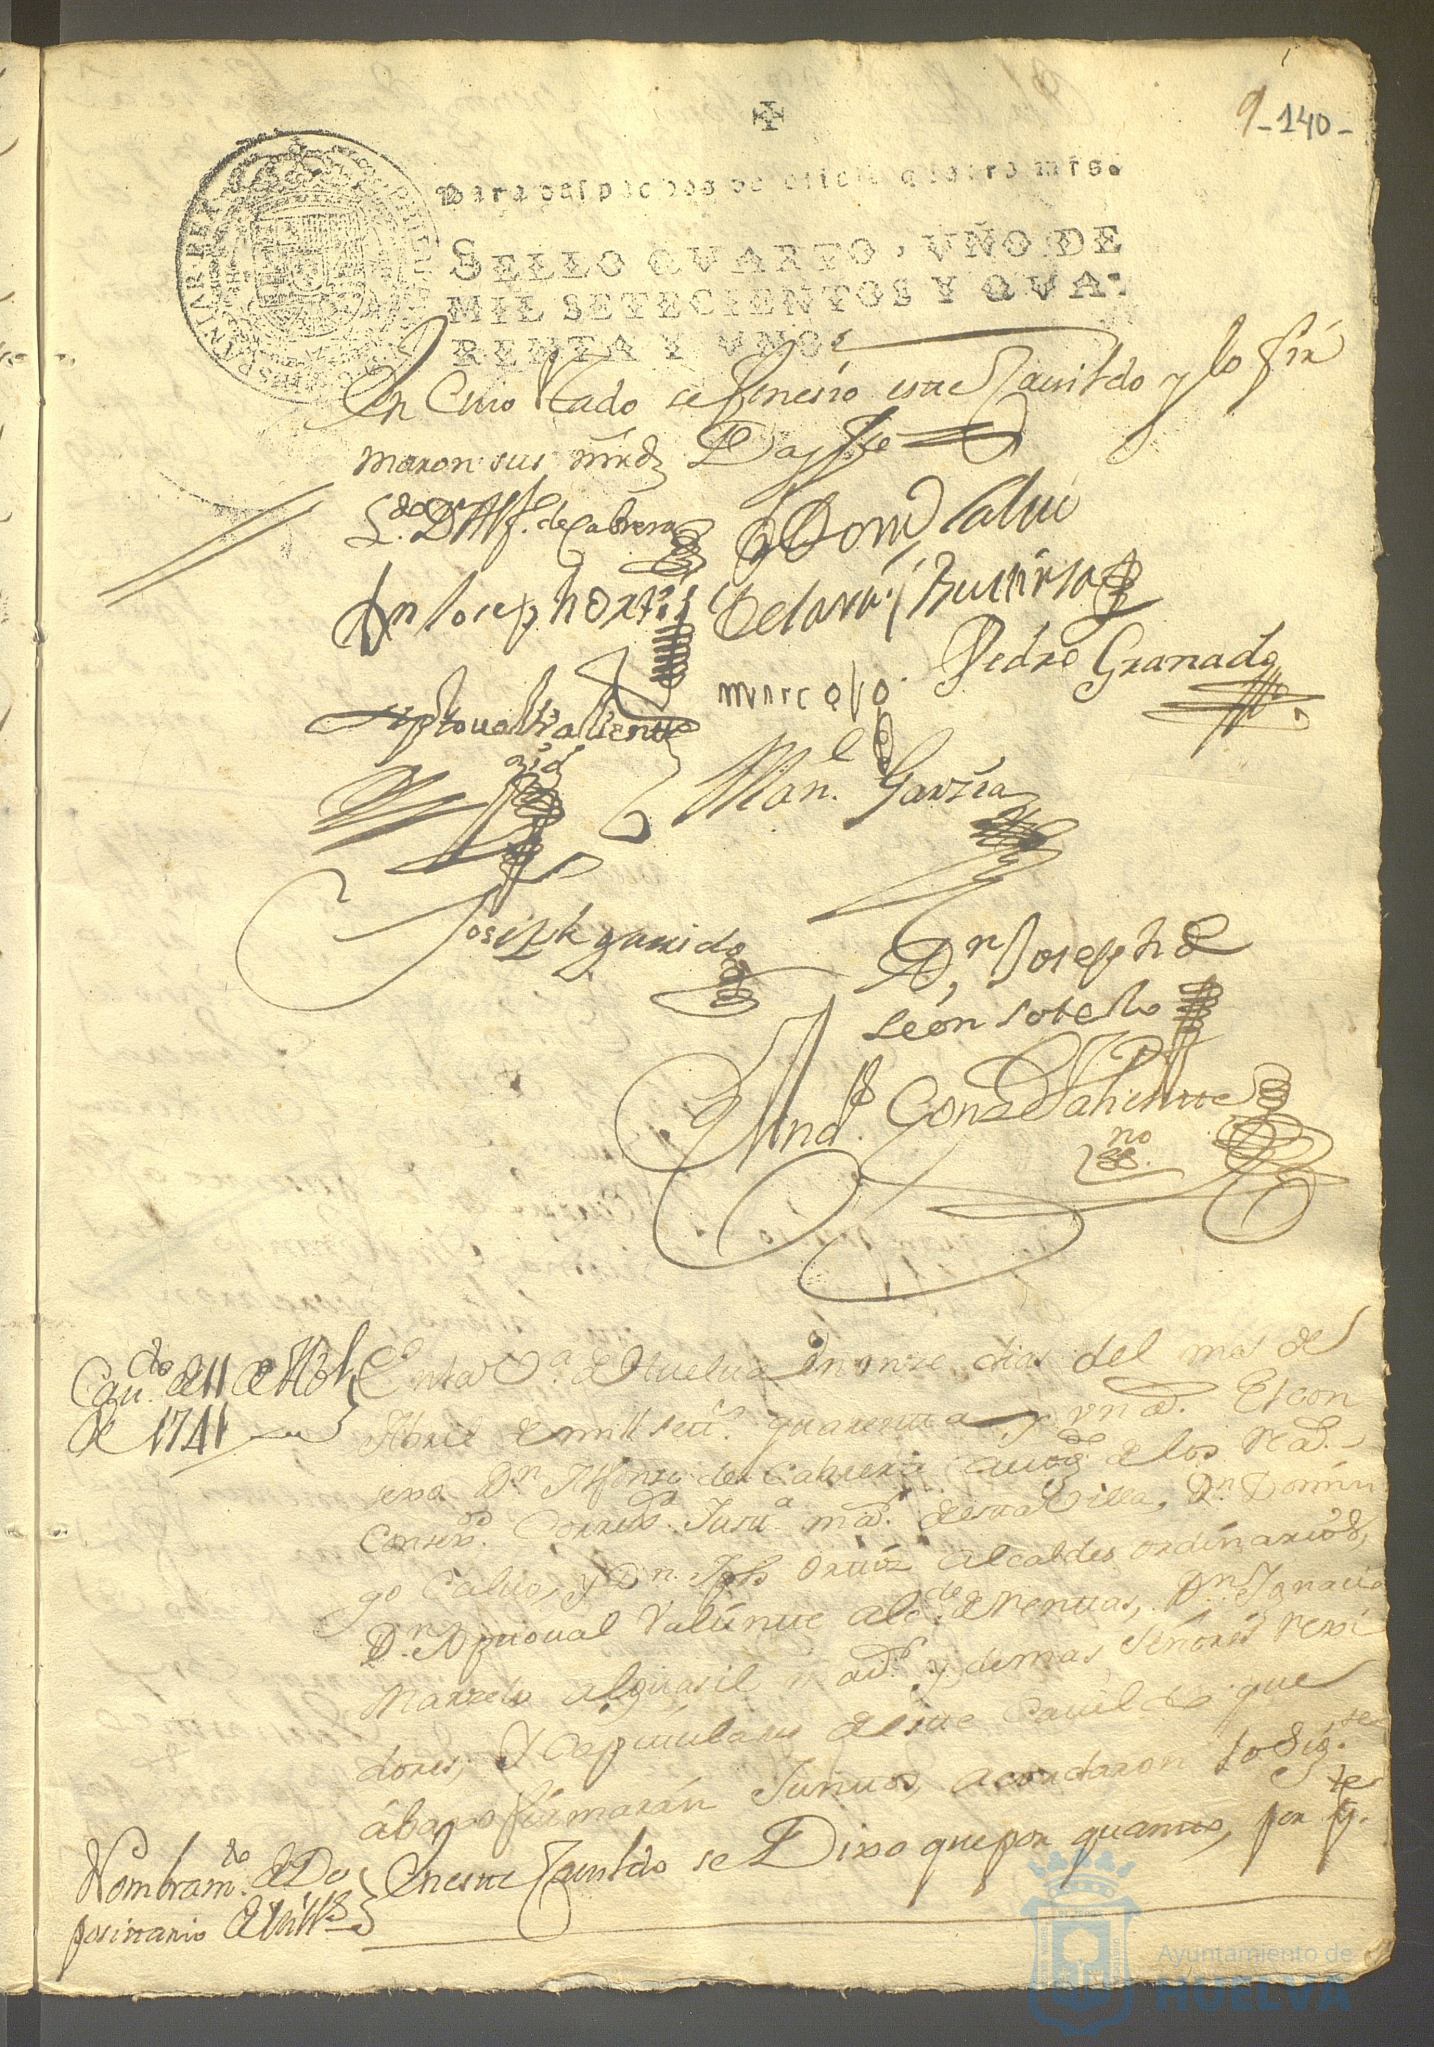 9 - 140 -
Para despachos de oficio quatro mrs.
SELLO QVARTO, VÑO DE
MIL SETECIENTOS Y QVA-
RENTA Y VNO.
En Cuio estado se fenesio este Cauildo y lo fir
maron sus mrds Doy fee
L.do Dn Alf.o de Cabrera
Domº Calvo
Dn Joseph Ortiz
Pedro Granado
Xptoual Valiente
Marcelo
Man.l Garzia
Joseph garrido
Dn Joseph de
León sotelo
And.s Gonz Valiente
no
Cau.do de 11 de Abl
de 1741
En la V.a de Huelua en onze dias del mes de
Abril de mill set.s quarenta y un a.s El con
sexo Dn Alfonso de Cabrera auog.do de los Rea.s
Consexos Correx.or Just.a ma.r desta Villa, Dn Domin
go Calvo, y Dn. Jph Ortiz Alcaldes ordinarios,
Dn Xptoual Valiente alc.de de Rentas, Dn Ignacio
Marzelo alguasil ma.r y demas señores rexi
dores, y Capitulares deste Cauildo que
abaxo firmarán Juntos, acordaron lo sig.te
Nombram.to de De
positario
En este Cauildo se Dixo que por quanto, por
Ayuntamiento de
HUELVA